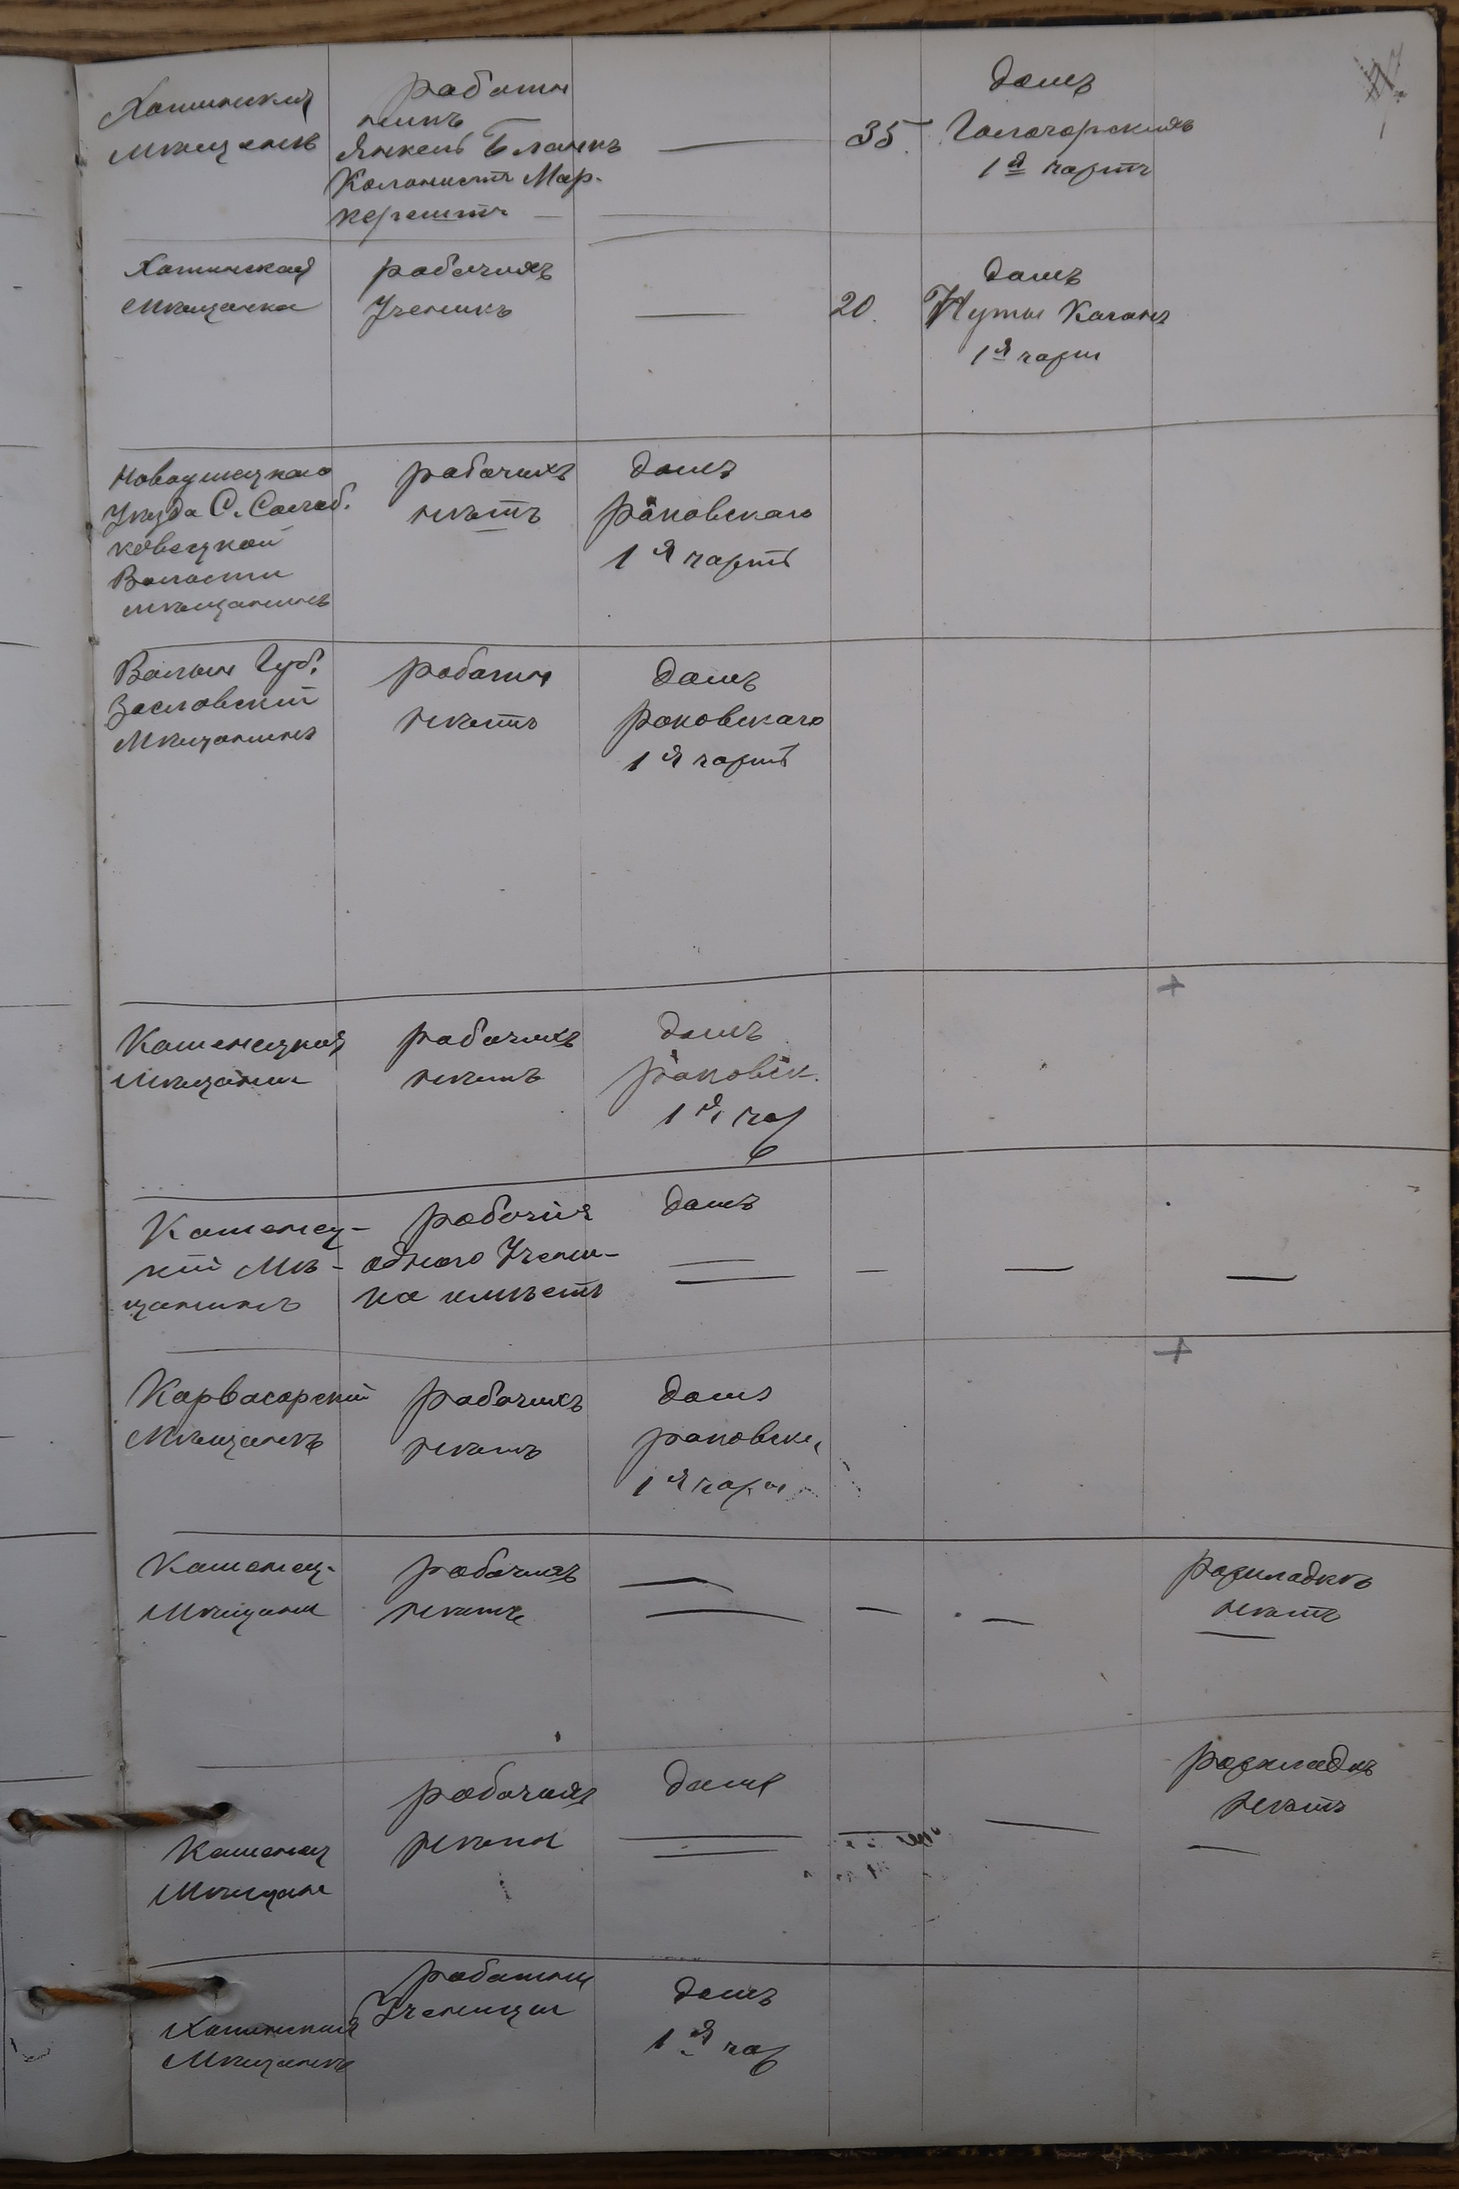 Хотинскія
мѣщанѣ
работн
никъ
Янкель Бланкъ
Колонистъ Мар-
кулештъ —
—
35.
домъ
Гологорскихъ
1я часть
Хотинская
Мѣщанка
рабочихъ
Ученикъ
—
20.
домъ
Нуты Каганъ
1я част
Новоушицкаго
Уѣзда С. Солоб.
ковецкой
Волости
мѣщанинъ
рабочихъ
нѣтъ
домъ
Раковскаго
1я часть
Волын Губ.
Заславскій
Мѣщанинъ
работн
нѣтъ
домъ
Раковскаго
1я часть
Каменецкія
Мѣщани
рабочихъ
нѣтъ
домъ
Раковск.
1я час
Каменец-
кій Мѣ-
щанинъ
рабочія
одного Учени-
ка имѣетъ
домъ
— — — —
Карвасарскій
Мѣщанѣ
рабочихъ
нѣтъ
домъ
Раковск.
1я част
Каменец-
Мѣщани
рабочихъ
нѣтъ
— — —
раскладкѣ
нѣтъ
Каменец
Мѣщане
рабочихъ
нѣтъ
домъ
— — —
раскладкѣ
нѣтъ
Хотинскія
Мѣщанѣ
работниц
Ученицы
домъ
1я час